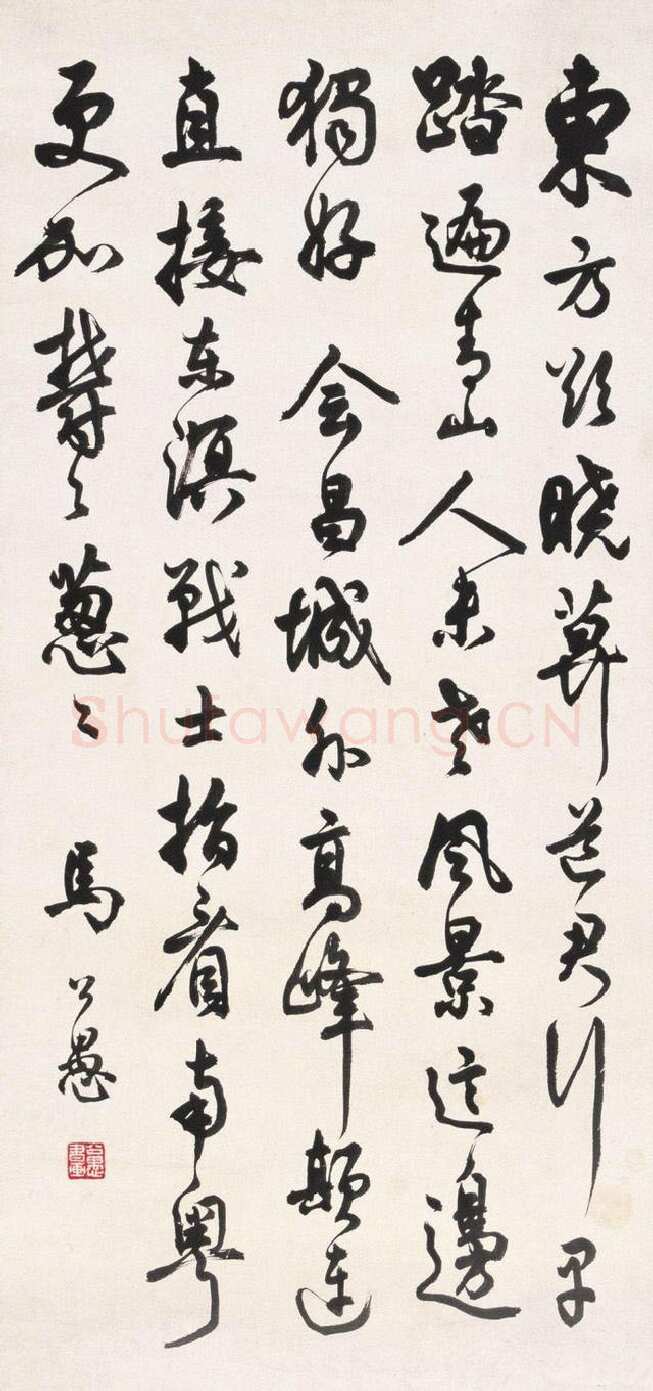 東方欲曉莫道君行早
踏遍青山人未老風景這邊
獨好 会昌城外高峰顛連
直接东溟战士指看南粤
更加鬱々葱々 馬公愚
公愚書画
Shufawang.CN